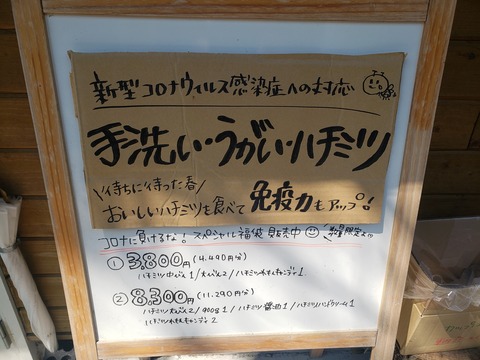 新型コロナウィルス感染症への対応
手洗い・うがい・ハチミツ
\待ちに待った春/
おいしいハチミツを食べて免疫力もアップ!
コロナに負けるな! スペシャル福袋 販売中 数量限定
① 3,800円(4,490円分)
ハチミツ中びん1/大びん2/ハチミツキャンディ1
② 8,300円(11,290円分)
ハチミツ大びん2/900g1/ハチミツ醤油1/ハチミツハンドクリーム1
キャンディ2